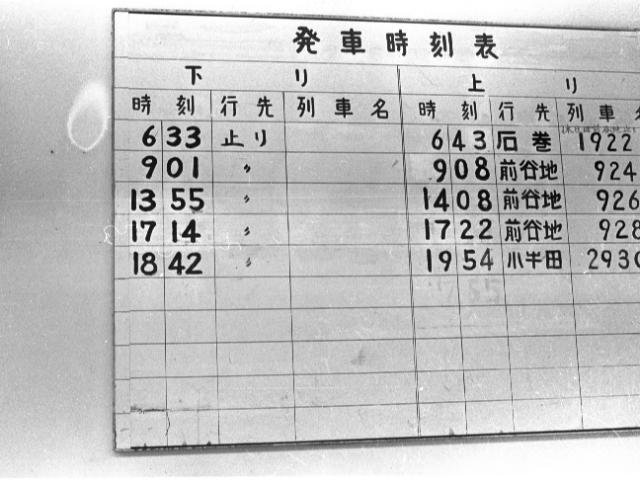 発車時刻表
下り 上り
時刻 行先 列車名 時刻 行先 列車名
6 33 止り 6 43 石巻 1922
9 01 〃 9 08 前谷地 924
13 55 〃 14 08 前谷地 926
17 14 〃 17 22 前谷地 928
18 42 〃 19 54 小牛田 2930